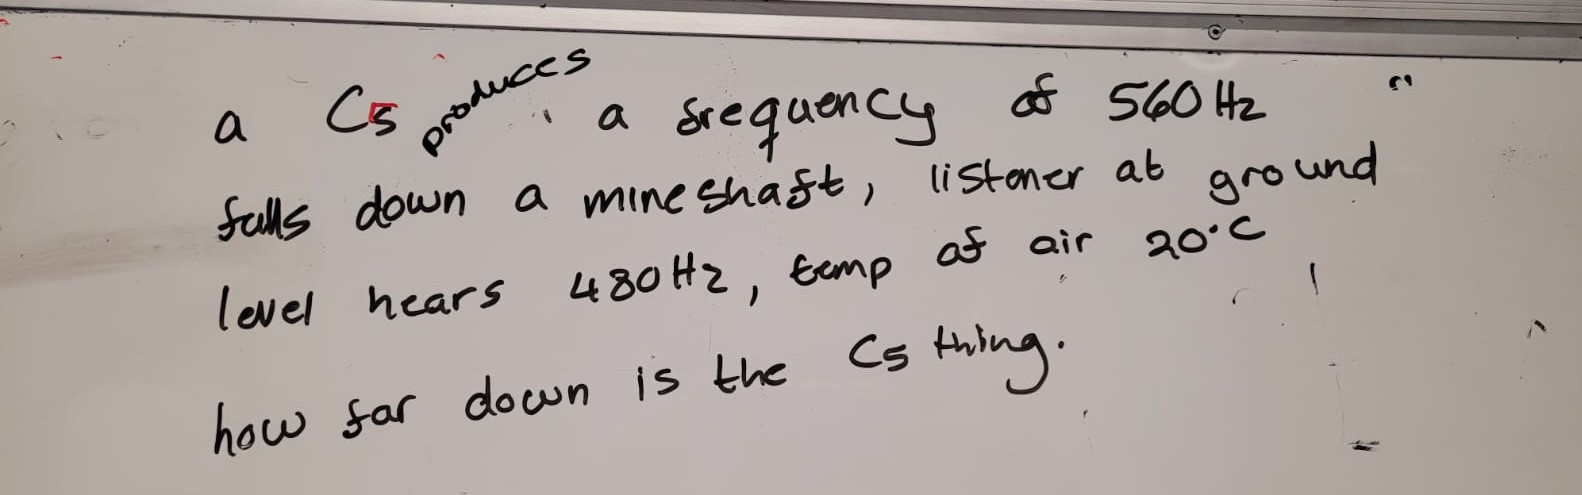 a C5 produces a frequency of 560 Hz
falls down a mineshaft, listener at ground
level hears 480 Hz, temp of air 20°C
how far down is the C5 thing.